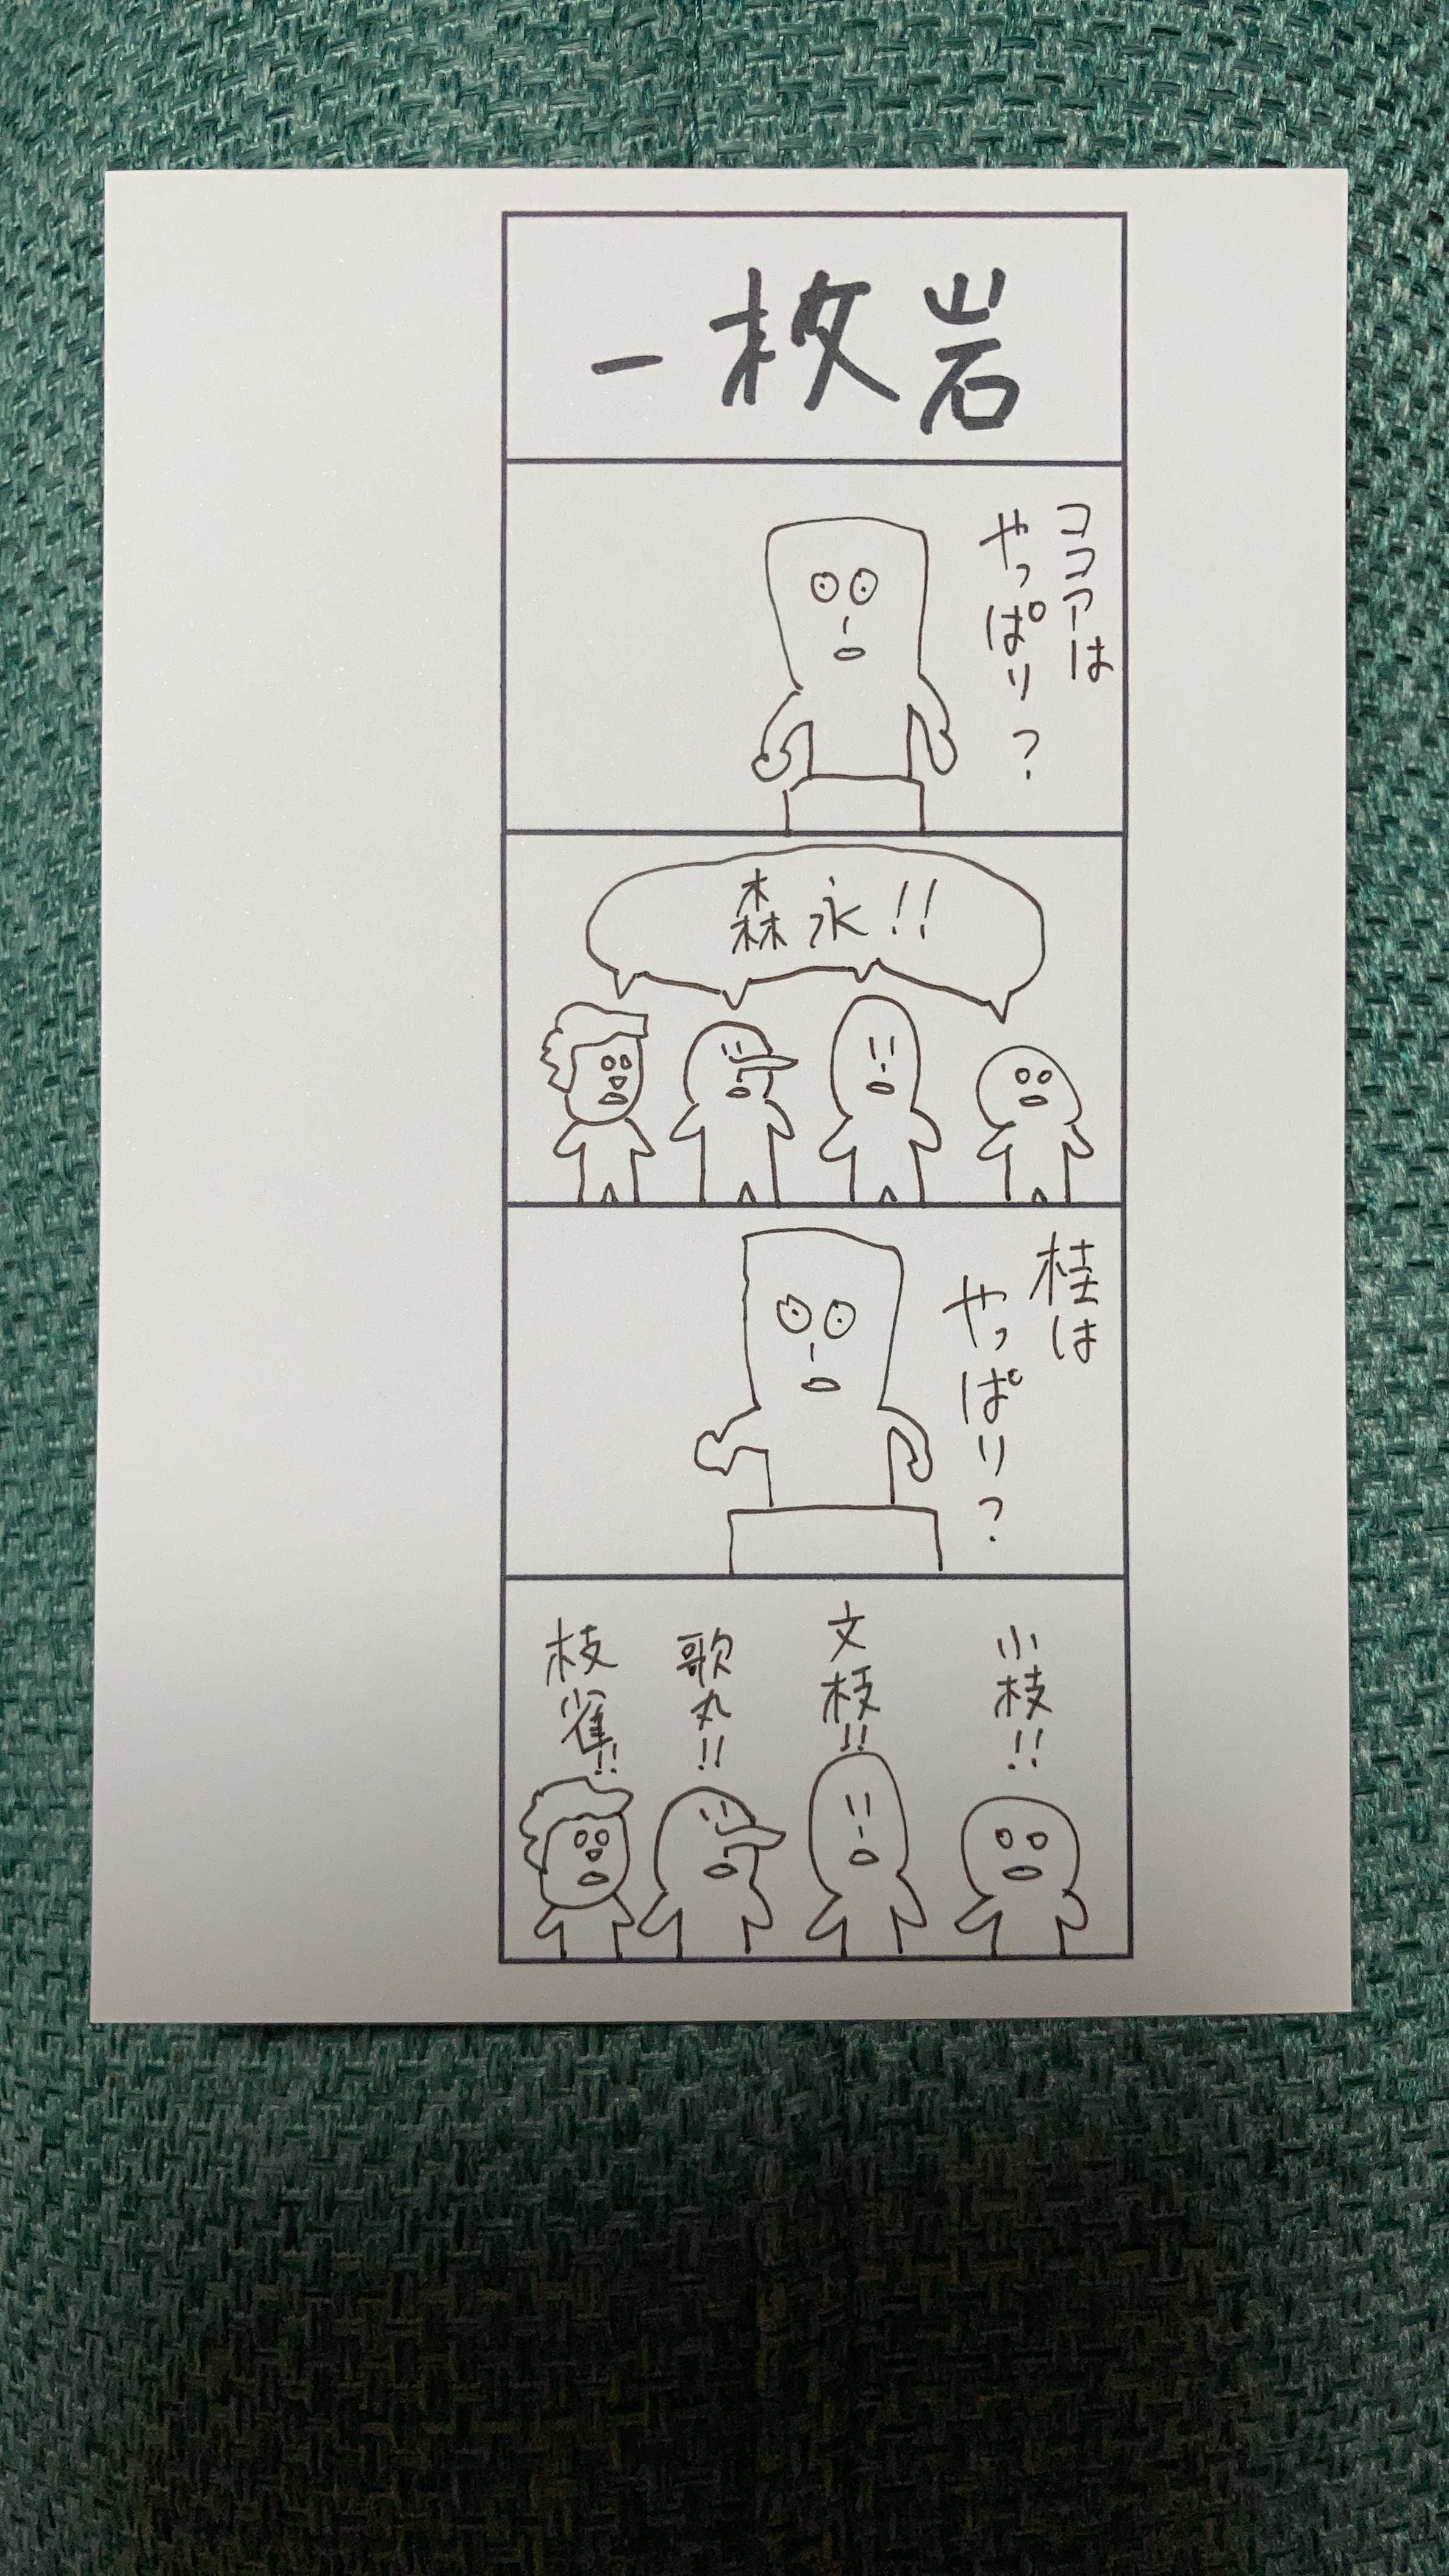 一枚岩
ココアは
やっぱり？
森永！！
桂は
やっぱり？
小枝！！
文枝！！
歌丸！！
枝雀！！